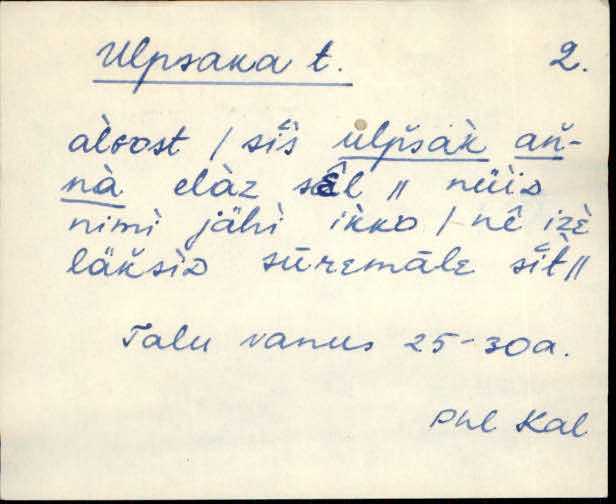 Ulpsaka t. 2.
àlsost / sı̆s ulp̆sàk an̆-
nà elàz sêl // nüüd
nimì jähì ikko / nê izè
läk̆sid sūremāle sı̆t //
Talu vanus 25-30a.
Phl Kal